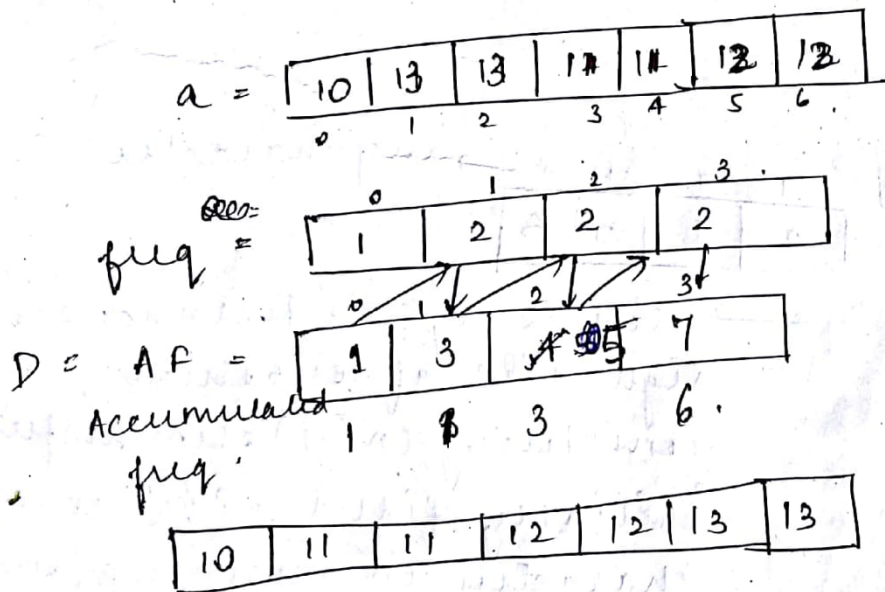 a = 10 13 13 11 11 12 12
0 1 2 3 4 5 6.
0 1 2 3.
freq = 1 2 2 2
0 1 2 3
D = AF = 1 3 4 5 7
Accumulated 1 3 6.
freq.
10 11 11 12 12 13 13